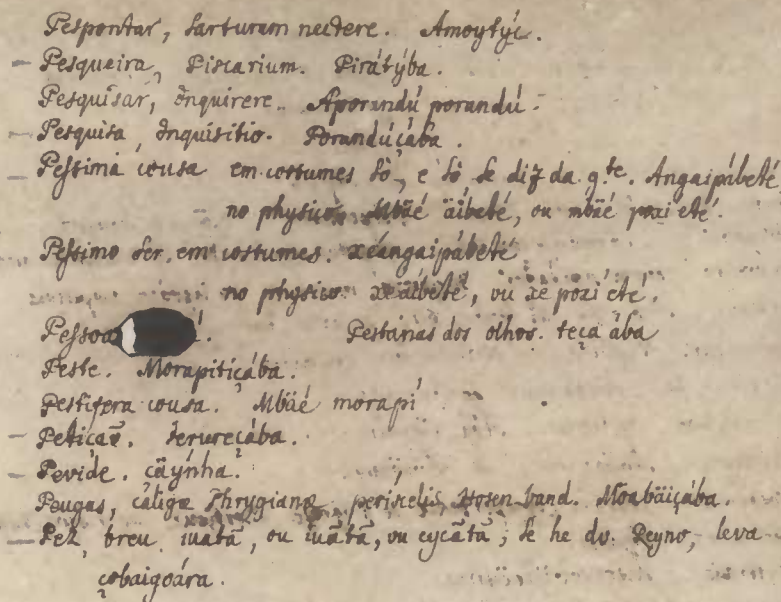 Pespontar, sarturam nectere. Amoytyíc.
– Pesqueira, Piscarium. Pirátýba.
Pesquisar, Inquirere. Aporandú porandú.
– Pesquisa, Inquisitio. Porandúçába.
– Pessima cousa em costumes sò, e sò se diz da g.te. Angaipábeté
no physico. Mbäé äíbeté, ou mbäé poxi eté.
Pessimo ser em costumes. xéangaipábeté
no physico. xe äíbeté, ou xe poxi eté.
Pessoa Pestanas dos olhos. teçá ába
Peste. Morapitiçába.
Pestifera cousa. Mbäé morapí
– Petiçaẽ. Jerureçába.
– Pevide. çäýnha.
Peugas, caligæ Phrygianæ, periscelis, Hosen-band. Moabäiçába.
– Pez, breu. iuatã, ou iuãtã, ou cycãtã; se he do Reyno, leva
çobaigoára.